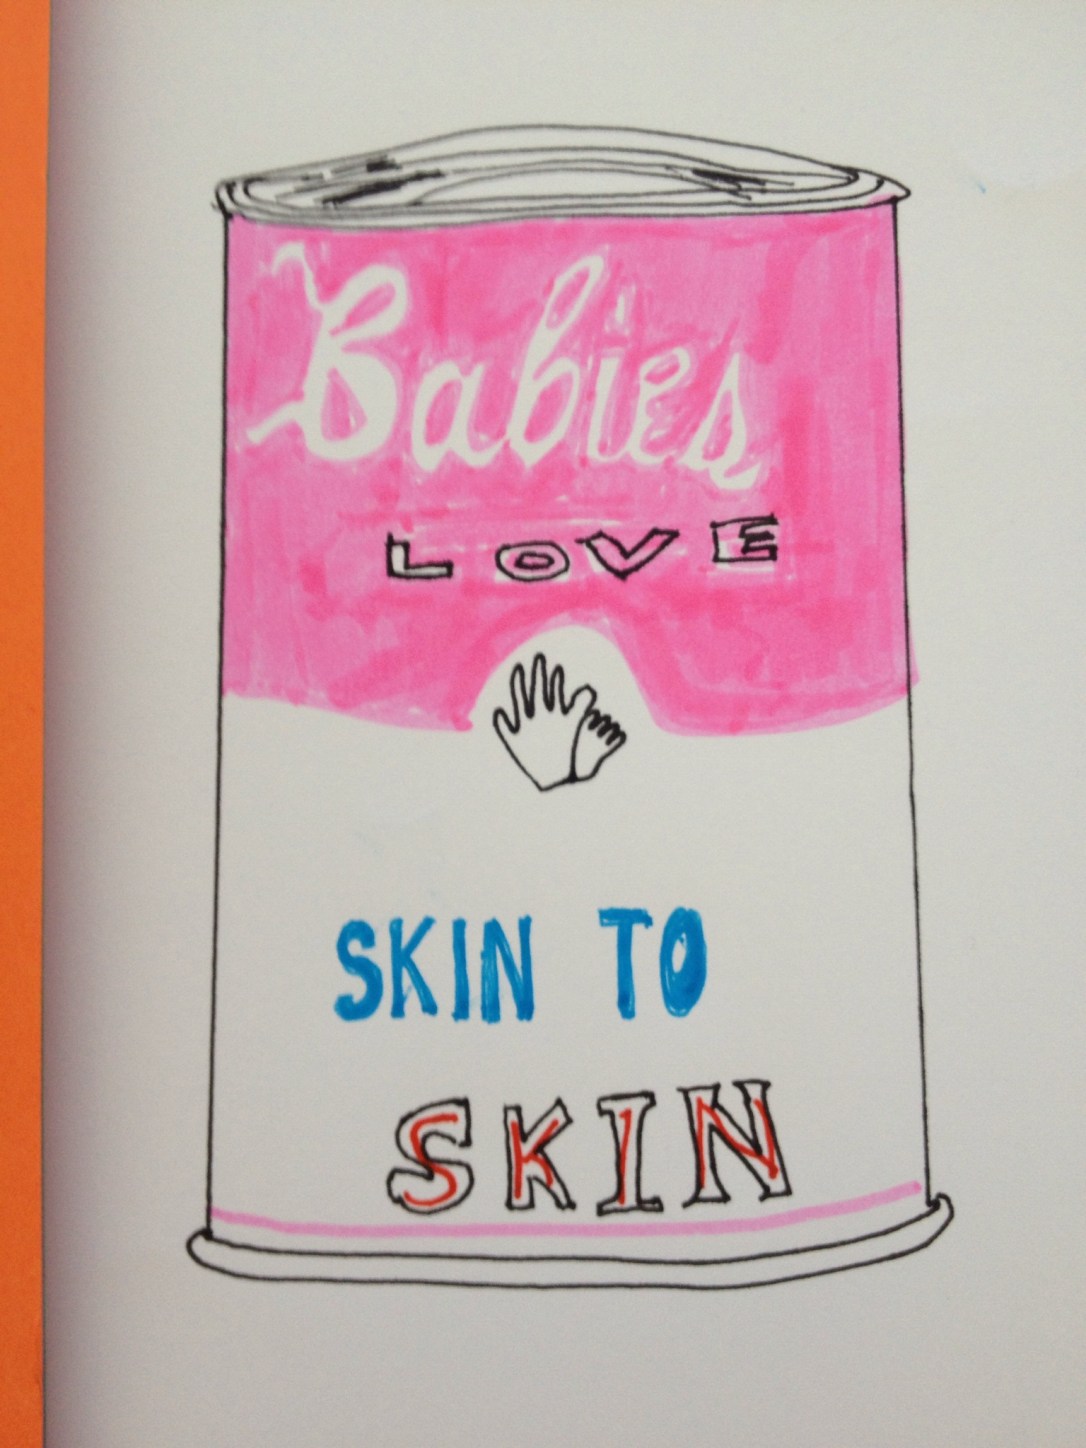 Babies
LOVE
SKIN TO
SKIN